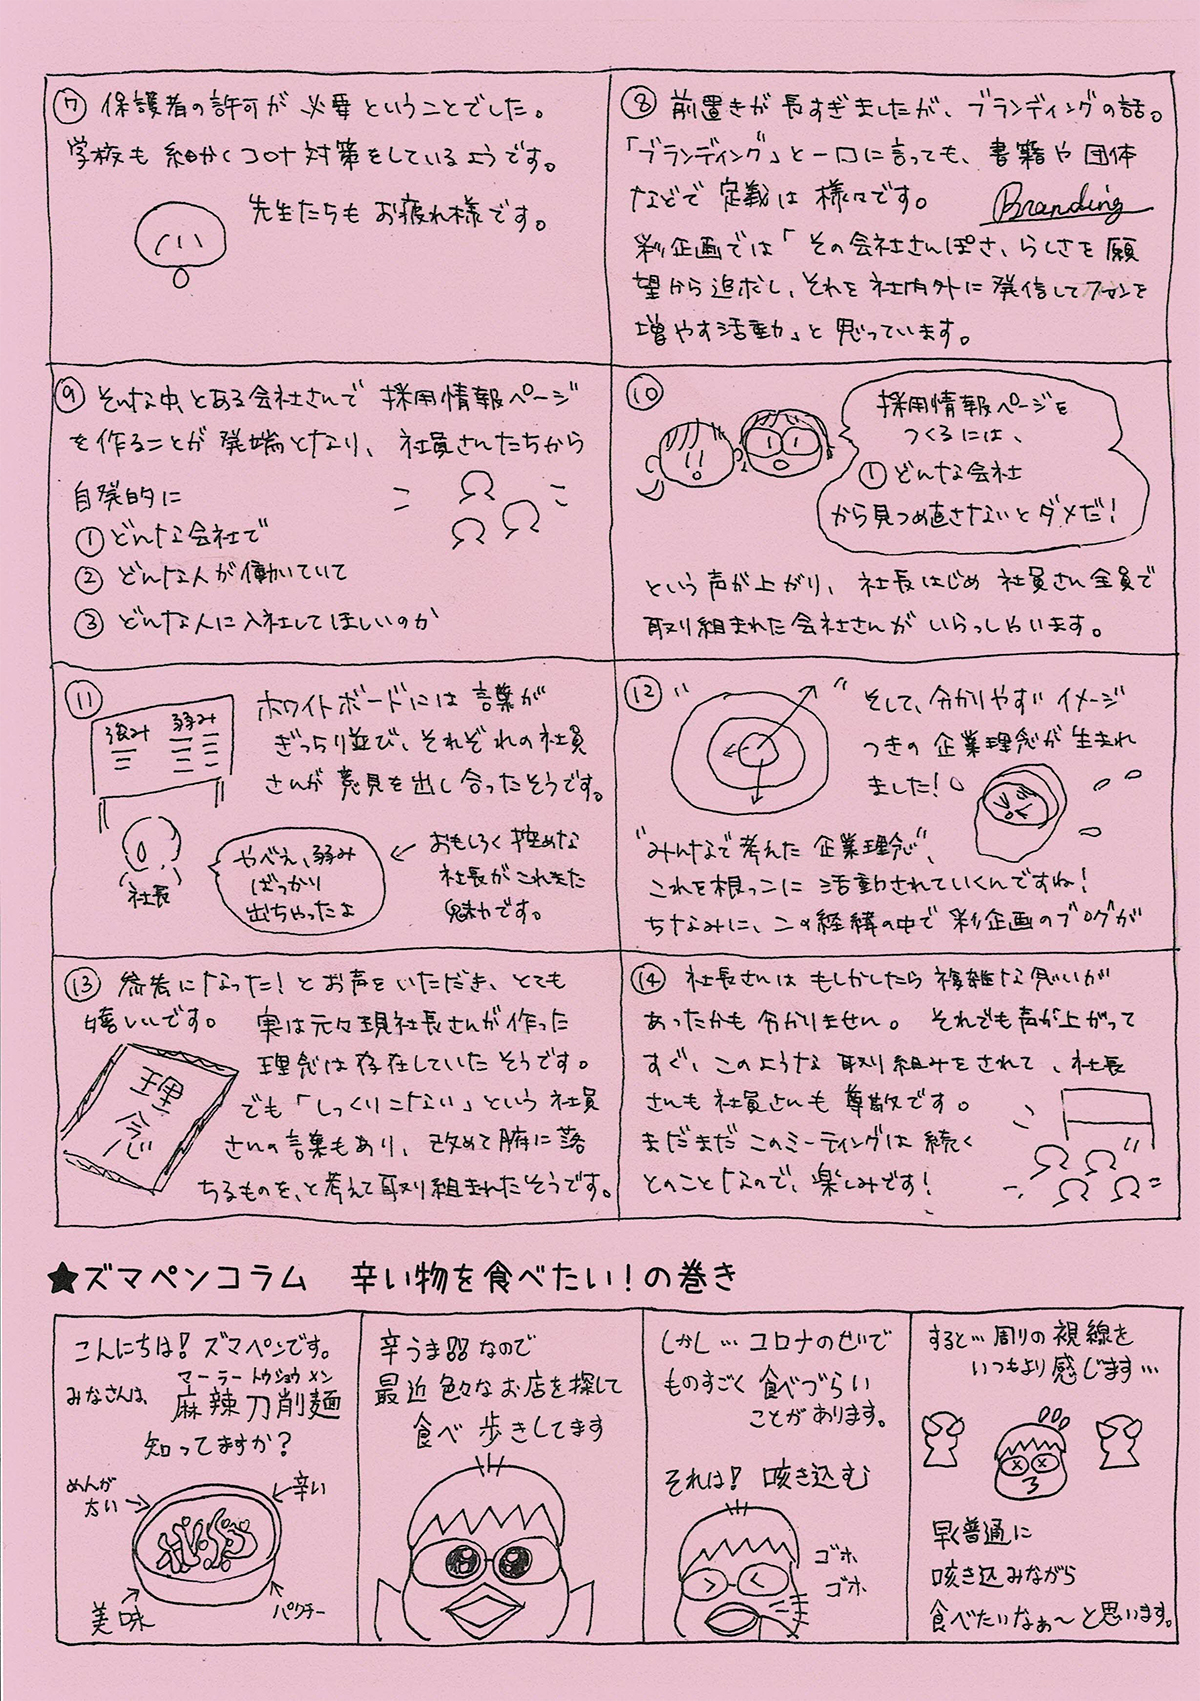 ⑦ 保護者の許可が 必要 ということでした。
学校も 細かくコロナ対策をしているようです。
先生たちも お疲れ様です。
⑧ 前置きが 長すぎましたが、ブランディングの話。
「ブランディング」と一口に言っても、書籍や 団体
などで 定義は 様々です。
Branding
彩企画では「その会社さんぽさ、らしさを 願
望から追求し、それを 社内外に 発信してファンを
増やす活動」と 思っています。
⑨ そんな中、とある会社さんで 採用情報ページ
を作ることが 発端となり、社員さんたちから
自発的に
① どんな会社で
② どんな人が 働いていて
③ どんな人に入社してほしいのか
⑩
採用情報ページを
つくるには、
① どんな会社
から見つめ直さないと ダメだ!
という声が上がり、社長はじめ 社員さん全員で
取り組まれた会社さんが いらっしゃいます。
⑪ ホワイトボードには 言葉が
ぎっちり並び、それぞれの社員
さんが 意見を出し合ったそうです。
強み 弱み
社長
やべえ、弱み
ばっかり
出ちゃったよ
← おもしろく 控めな
社長がこれまた
魅力です。
⑫ そして、分かりやすい イメージ
つきの 企業理念が 生まれ
ました!
"みんなで考えた 企業理念"、
これを根っこに 活動されていくんですね!
ちなみに、この経緯の中で 彩企画のブログが
⑬ 参考になった! とお声をいただき、とても
嬉しいです。 実は元々現社長さんが作った
理念は存在していた そうです。
でも「しっくりこない」という 社員
さんの言葉もあり、改めて 腑に落
ちるものを、と考えて取り組まれたそうです。
理念
⑭ 社長さんは もしかしたら 複雑な思いが
あったかも 分かりません。 それでも声が上がって
すぐ、このような 取り組みをされて、社長
さんも 社員さんも 尊敬です。
まだまだ このミーティングは 続く
とのこと なので、楽しみです!
★ズマペンコラム 辛い物を食べたい!の巻き
こんにちは! ズマペンです。
マーラー トウショウ メン
みなさんは、麻辣刀削麺
知ってますか?
めんが
太い→
←辛い
美味
パクチー
辛うま なので
最近 色々な お店を 探して
食べ 歩きしてます
しかし… コロナのせいで
ものすごく 食べづらい
ことがあります。
それは! 咳き込む
ゴホ
ゴホ
すると… 周りの 視線を
いつもより 感じます…
早く普通に
咳き込みながら
食べたいなぁ〜 と思います。